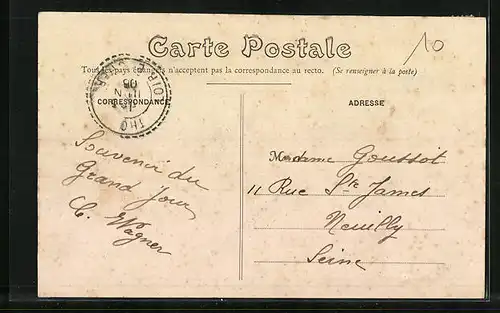 Carte Postale
10
Tous les pays étrangers n'acceptent pas la correspondance au recto. (Se renseigner à la poste)
CORRESPONDANCE
ADRESSE
Souvenir du
Grand Jour
C. Wagner
Madame Goussot
11 Rue Ste James
Neuilly
Seine